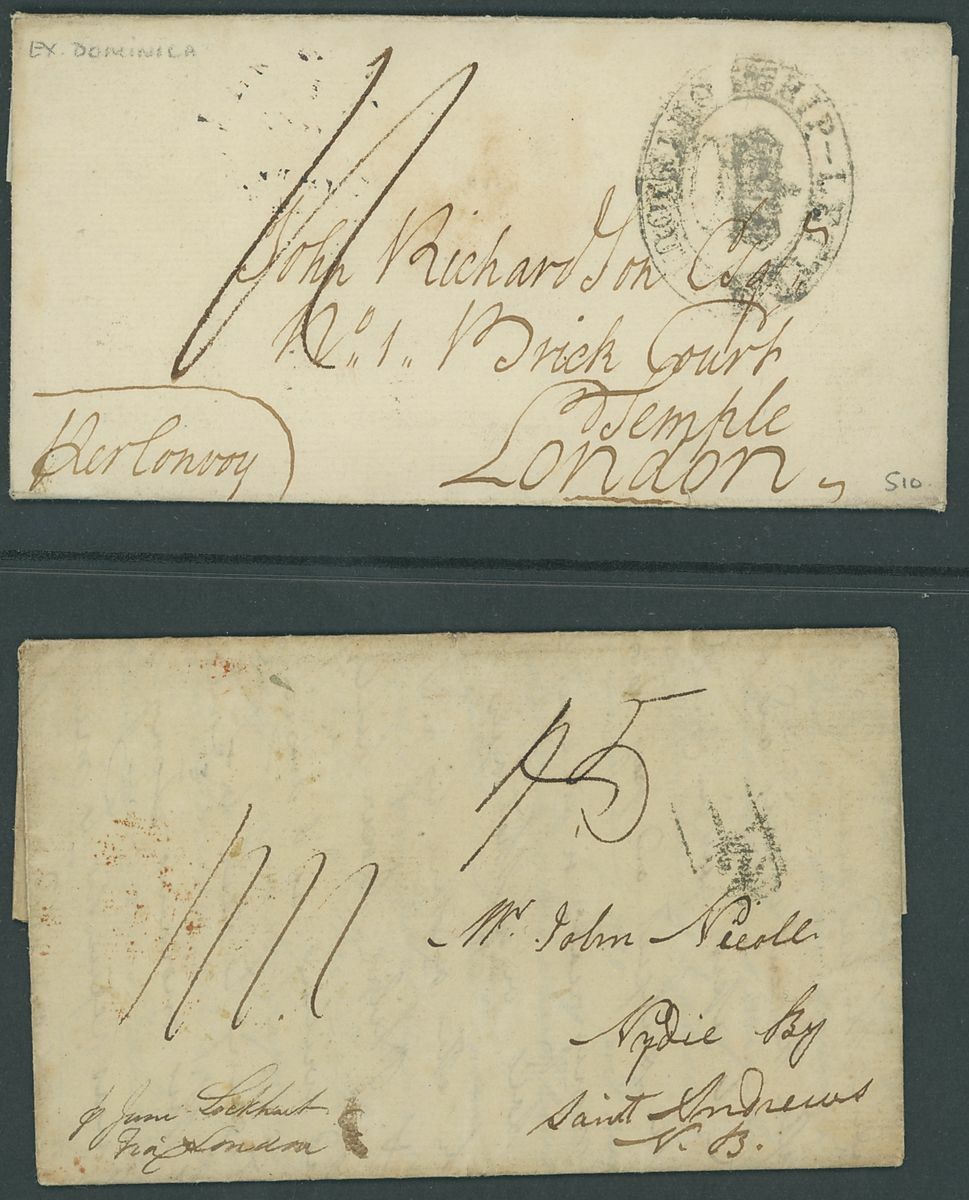 EX. DOMINICA
SHIP-LETTER
John Richardson Esqr
No. 1. Brick Court
Temple
London
Per Convoy
S10
Mr. John Nicoll
Nydie By
Saint Andrews
N. B.
p Jane Lockhart
Via London